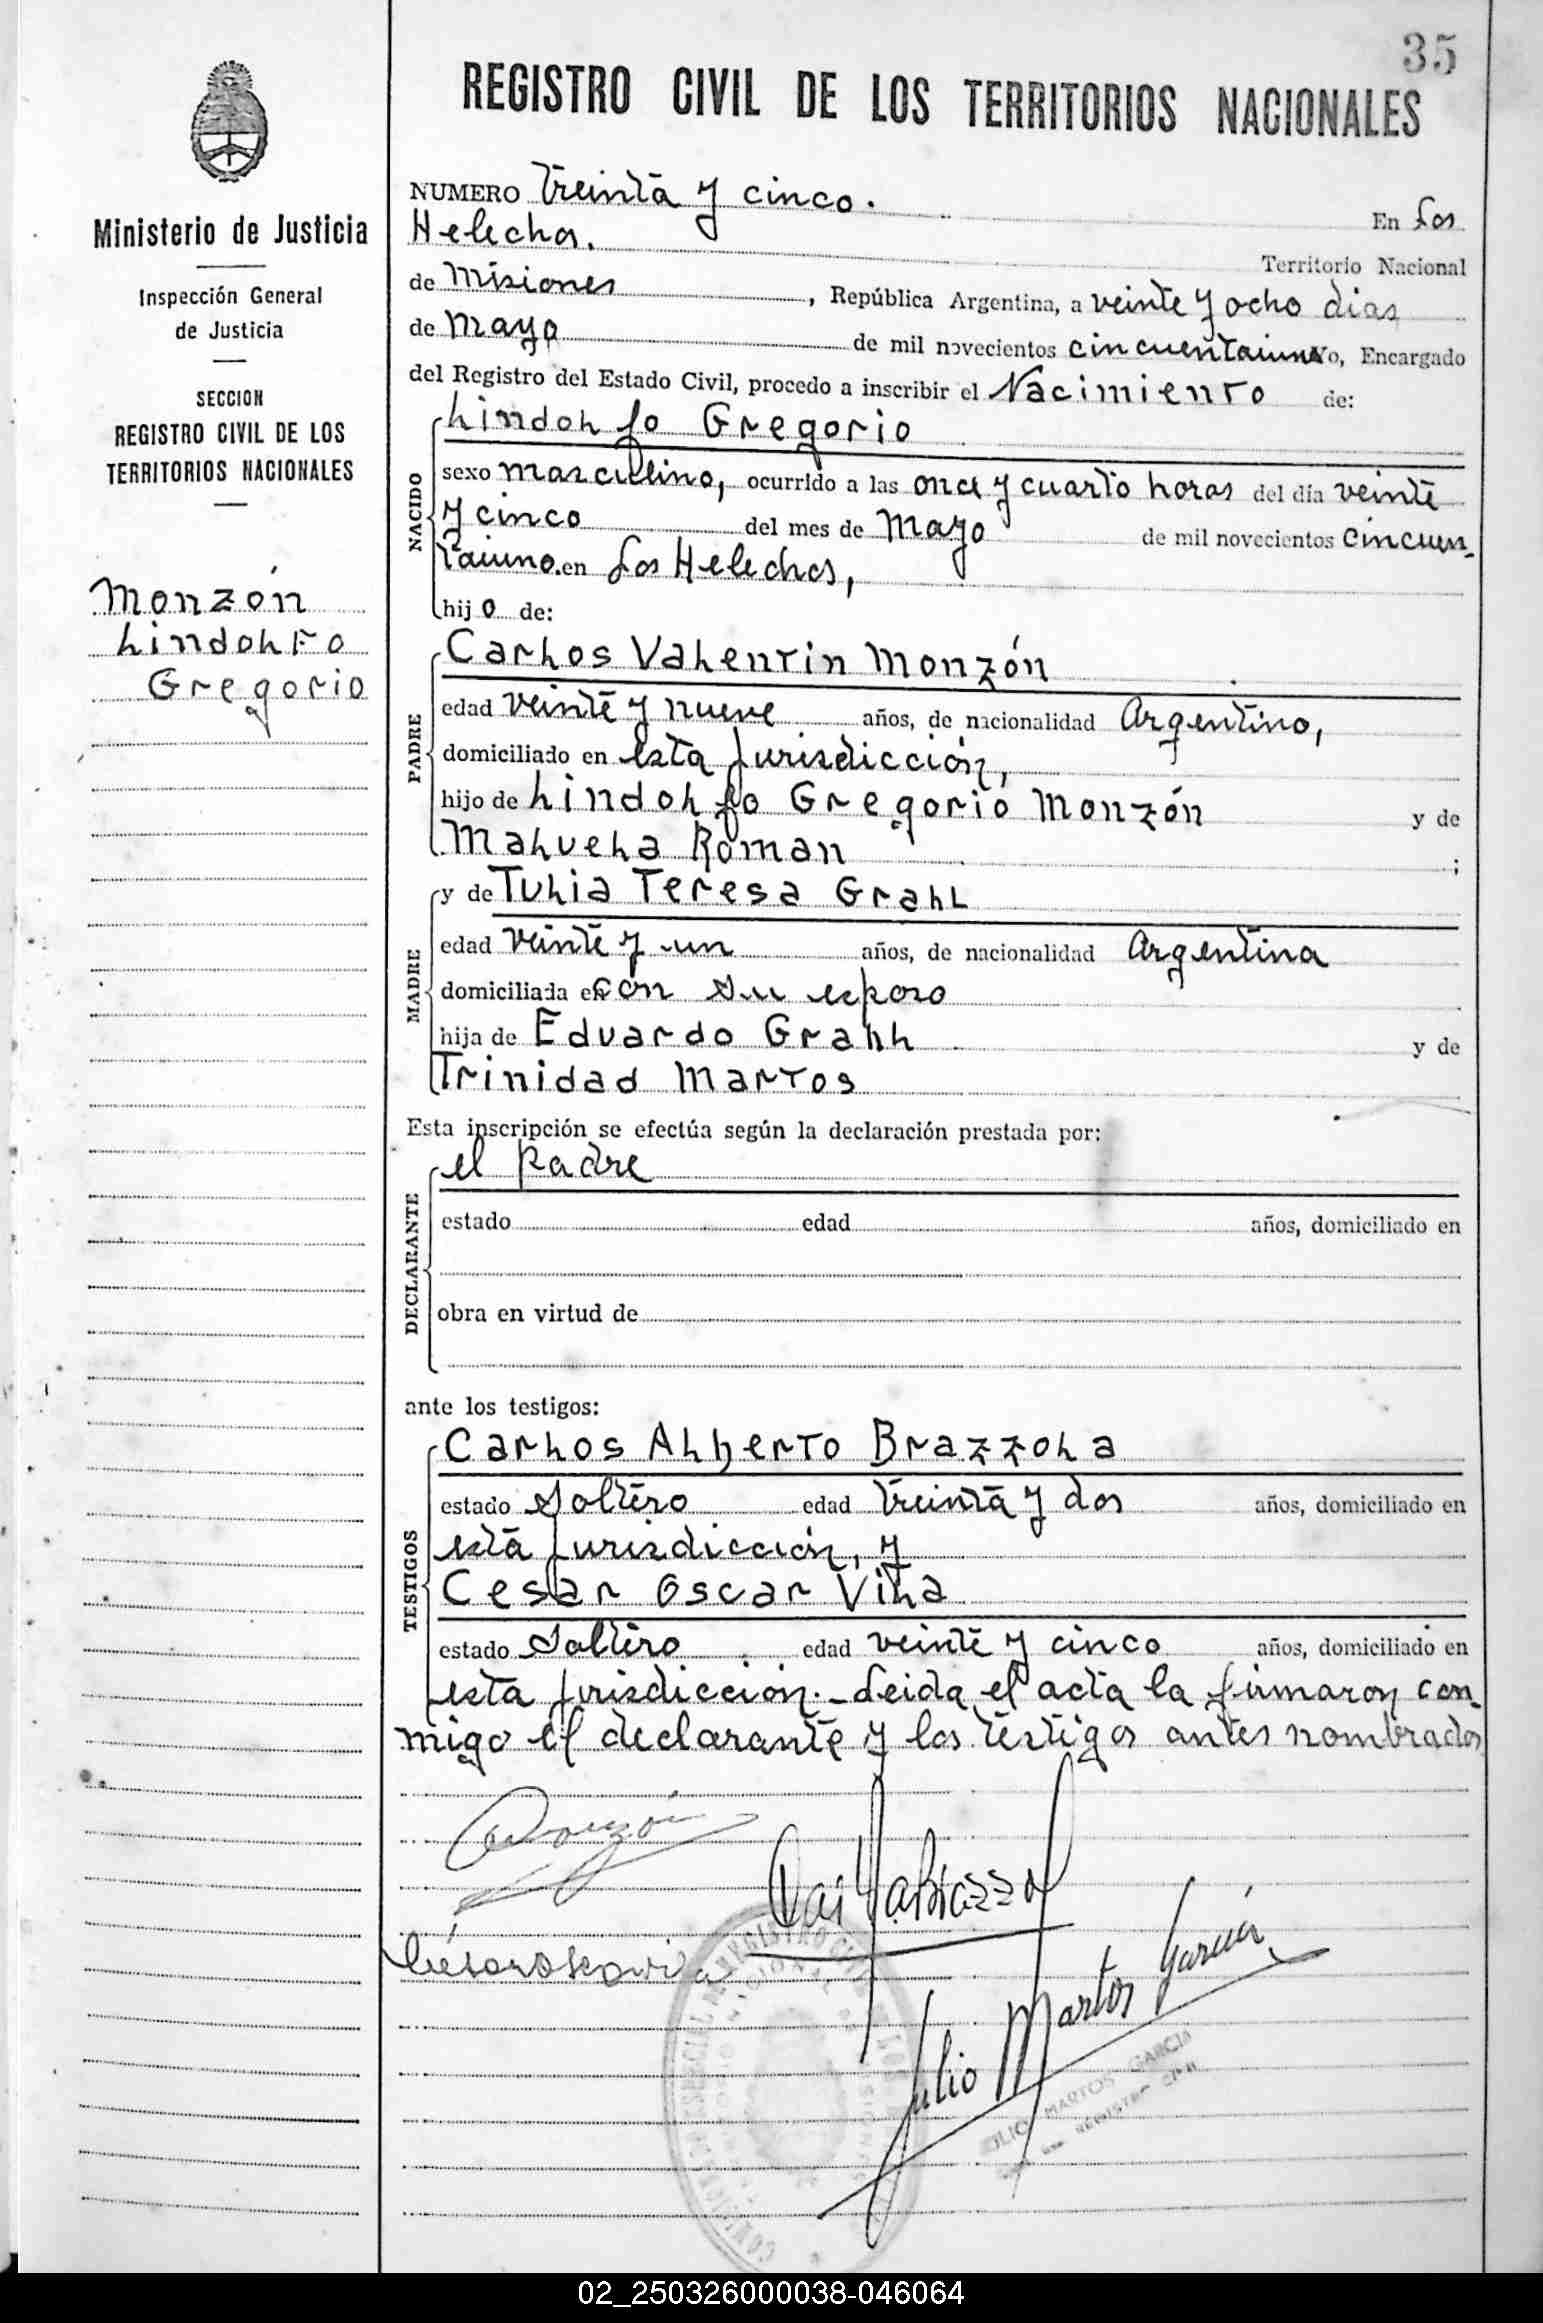 35
REGISTRO CIVIL DE LOS TERRITORIOS NACIONALES
Ministerio de Justicia
Inspección General
de Justicia
SECCION
REGISTRO CIVIL DE LOS
TERRITORIOS NACIONALES
Monzón
Lindolfo
Gregorio
NUMERO Treinta y cinco. En Los
Helechos. Territorio Nacional
de Misiones, República Argentina, a veinte y ocho dias
de Mayo de mil novecientos cincuentaiuno Yo, Encargado
del Registro del Estado Civil, procedo a inscribir el Nacimiento de:
NACIDO
Lindolfo Gregorio
sexo masculino, ocurrido a las once y cuarto horas del día veinte
y cinco del mes de Mayo de mil novecientos cincuen-
taiuno. en Los Helechos,
hijo de:
PADRE
Carlos Valentin Monzón
edad veinte y nueve años, de nacionalidad Argentino,
domiciliado en esta jurisdicción,
hijo de Lindolfo Gregorio Monzón y de
Manuela Roman ;
MADRE
y de Julia Teresa Grahl
edad veinte y un años, de nacionalidad Argentina
domiciliada en con su esposo
hija de Eduardo Grahl y de
Trinidad Martos
Esta inscripción se efectúa según la declaración prestada por:
DECLARANTE
el padre
estado edad años, domiciliado en
obra en virtud de
ante los testigos:
TESTIGOS
Carlos Alberto Brazzola
estado Soltero edad treinta y dos años, domiciliado en
esta jurisdicción, y
Cesar Oscar Vila
estado Soltero edad veinte y cinco años, domiciliado en
esta jurisdicción.- Leida el acta la firmaron con-
migo el declarante y los testigos antes nombrados
Monzón
César Oscar Vila
Julio Martos García
JULIO MARTOS GARCIA
02_250326000038-046064